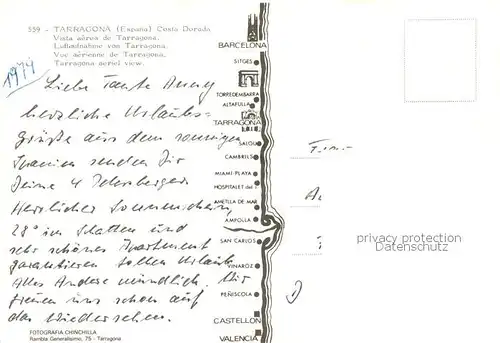 559 - TARRAGONA (España) Costa Dorada
Vista aérea de Tarragona.
Luftaufnahme von Tarragona.
Vue aérienne de Tarragona.
Tarragona aeriel view.
1979
Liebe Tante Anny
herzliche Urlaubs-
grüße aus dem sonnigen
Spanien senden Dir
Deine 4
Herrlicher Sonnenschein,
28° im Schatten und
sehr schönes Apartment
garantieren tollen Urlaub.
Alles Andere mündlich. Wir
freuen uns schon auf
das Wiedersehen.
FOTOGRAFIA CHINCHILLA
Rambla Generalísimo, 75 - Tarragona
BARCELONA
SITGES
TORREDEMBARRA
ALTAFULLA
TARRAGONA
SALOU
CAMBRILS
MIAMI-PLAYA
HOSPITALET del I.
AMETLLA DE MAR
AMPOLLA
SAN CARLOS
VINAROZ
PEÑISCOLA
CASTELLON
VALENCIA
privacy protection
Datenschutz